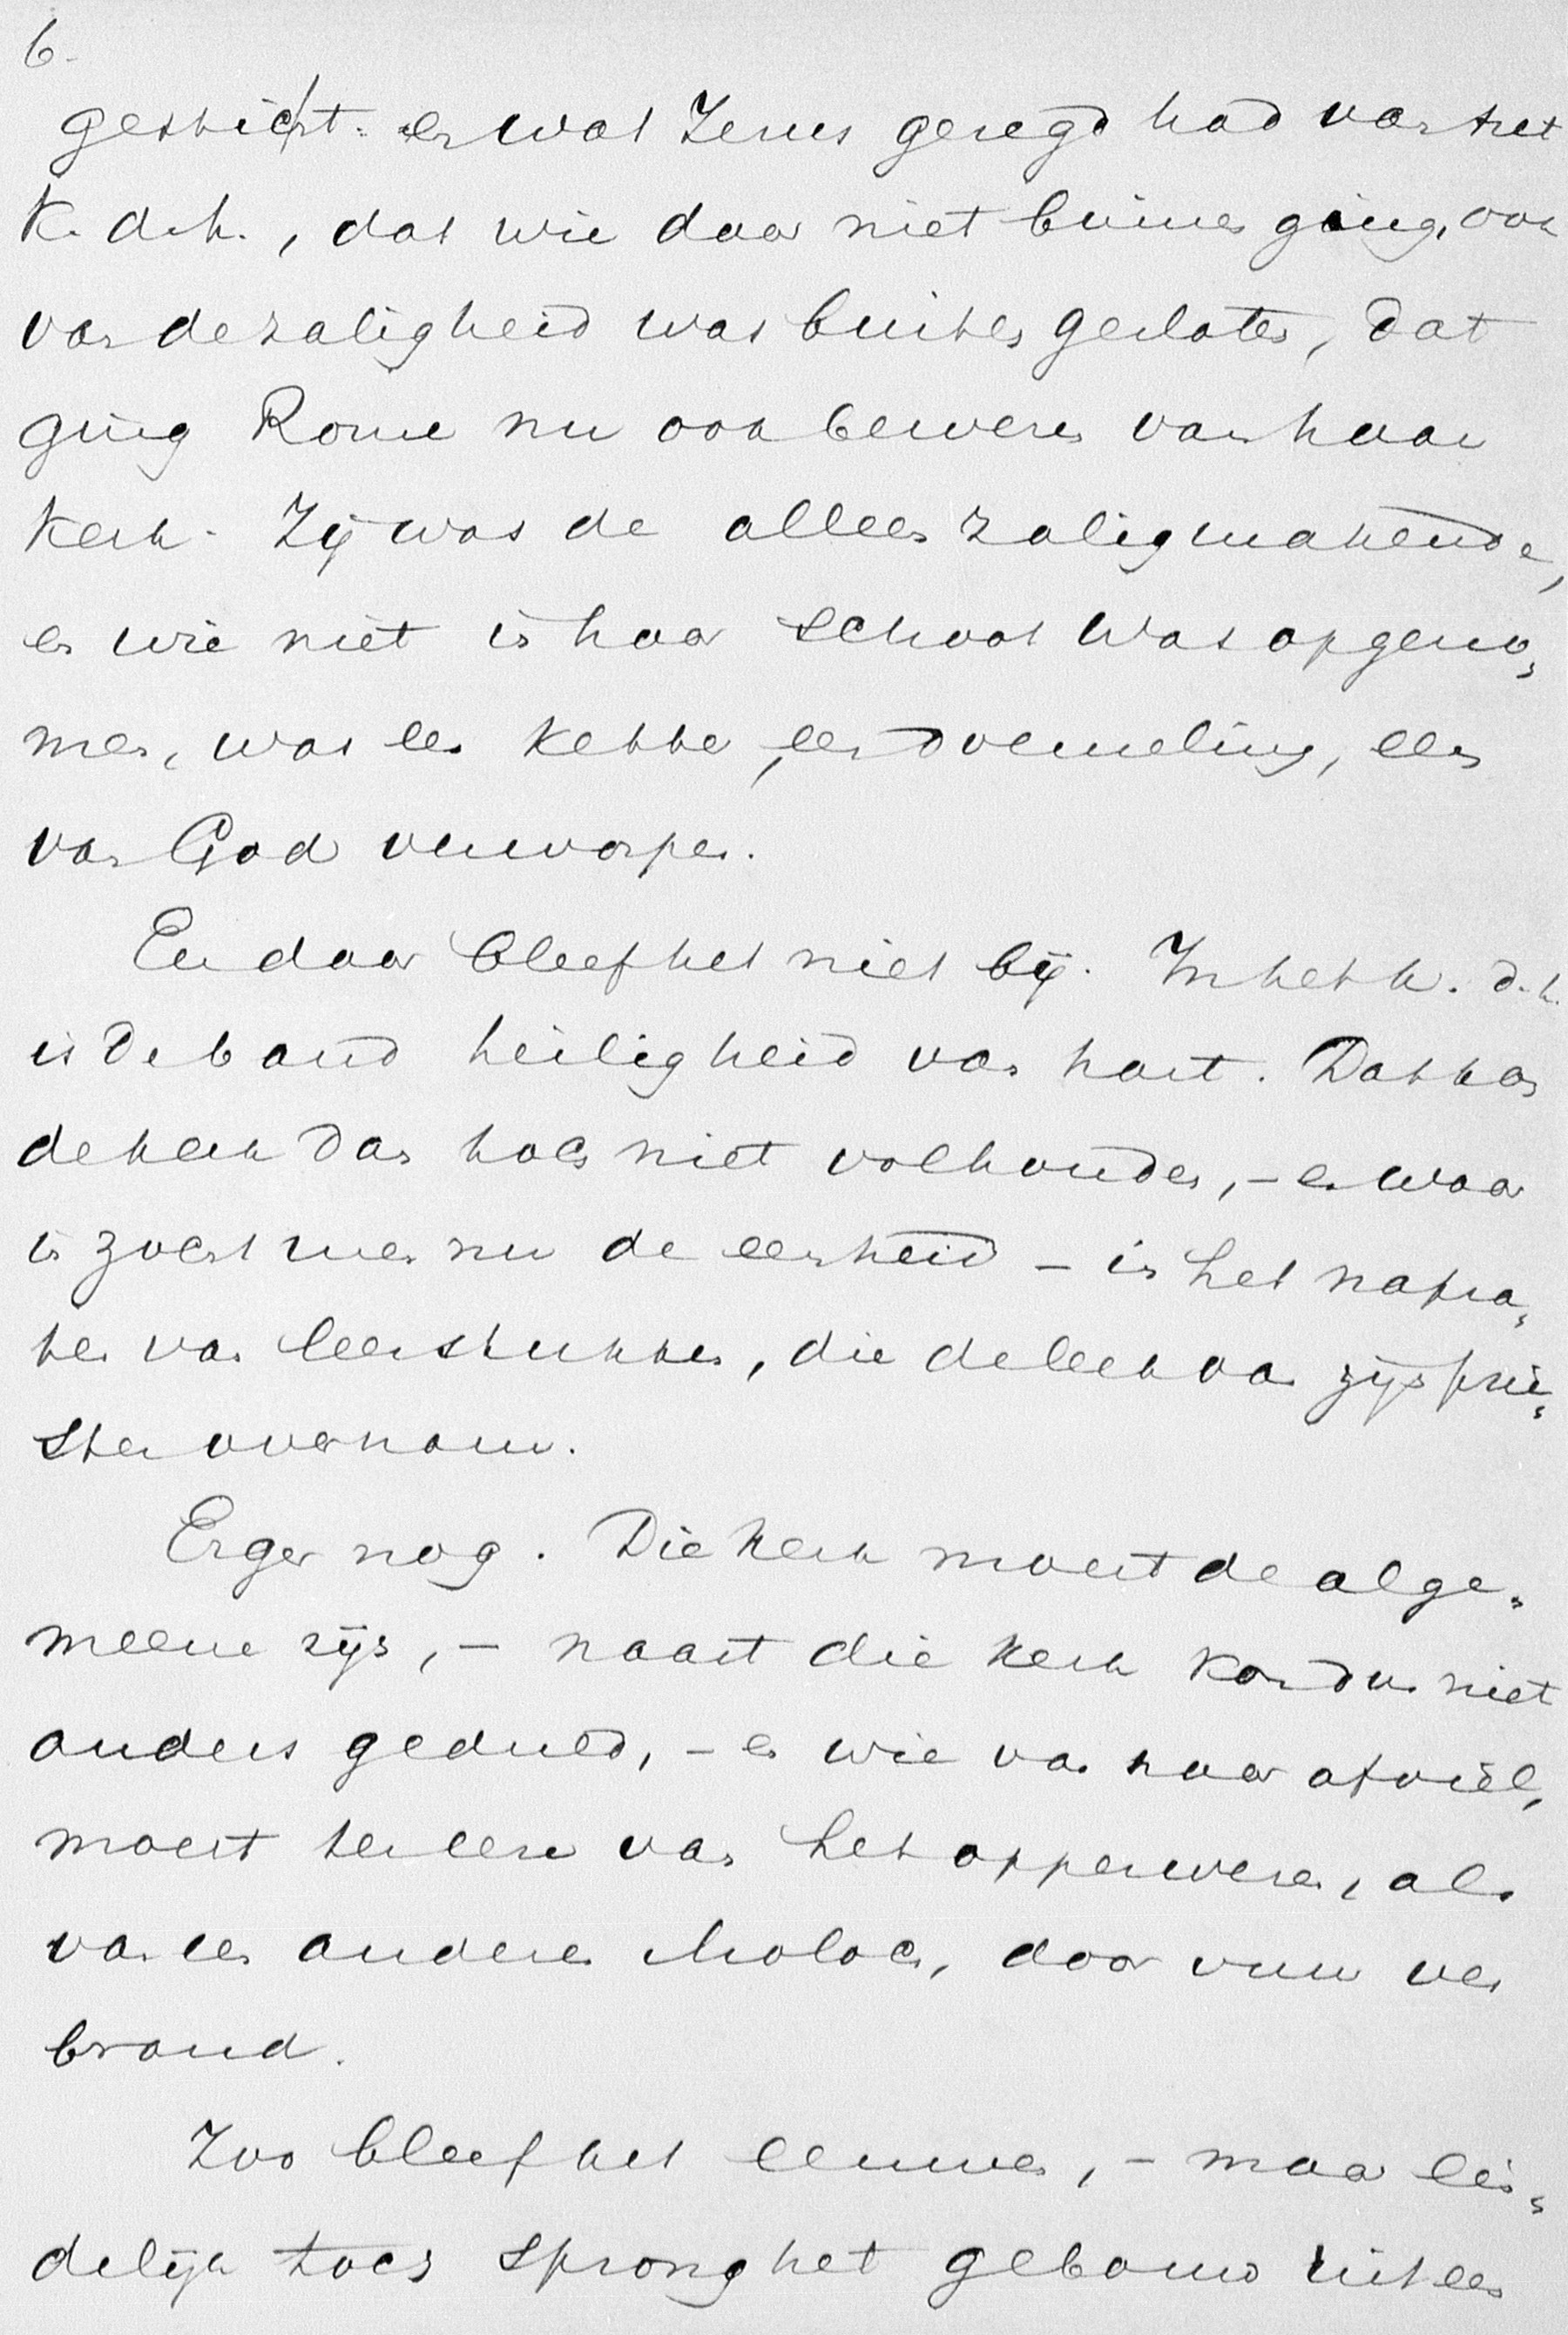 6.
gesticht. en wat Jezus gezegd had van het
K. d. h., dat wie daar niet binnen ging, ook
van de zaligheid was buiten gesloten, dat
ging Rome nu ook beweren van haar
Kerk. Zij was de alleen zaligmakende,
en wie niet in haar schoot was opgeno„
men, was een ketter, een doemeling, een
van God verworpen.
En daar bleef het niet bij. In het k. d. h.
is de band heiligheid van hart. Dat kon
de kerk dan toch niet volhouden, – en waar
in zocht men nu de eenheid – in het napra„
ten van leerstukken, die de leek van zijn prie„
ster overnam.
Erger nog. Die kerk moest de alge„
meene zijn, – naast die kerk kon dus niet
anders geduld, – en wie van haar afviel,
moest ter eere van het opperwezen, als
van een anderen Moloch, door vuur ver
brand.
Zoo bleef het eeuwen, – maar ein„
delijk toch sprong het gebouw uit een